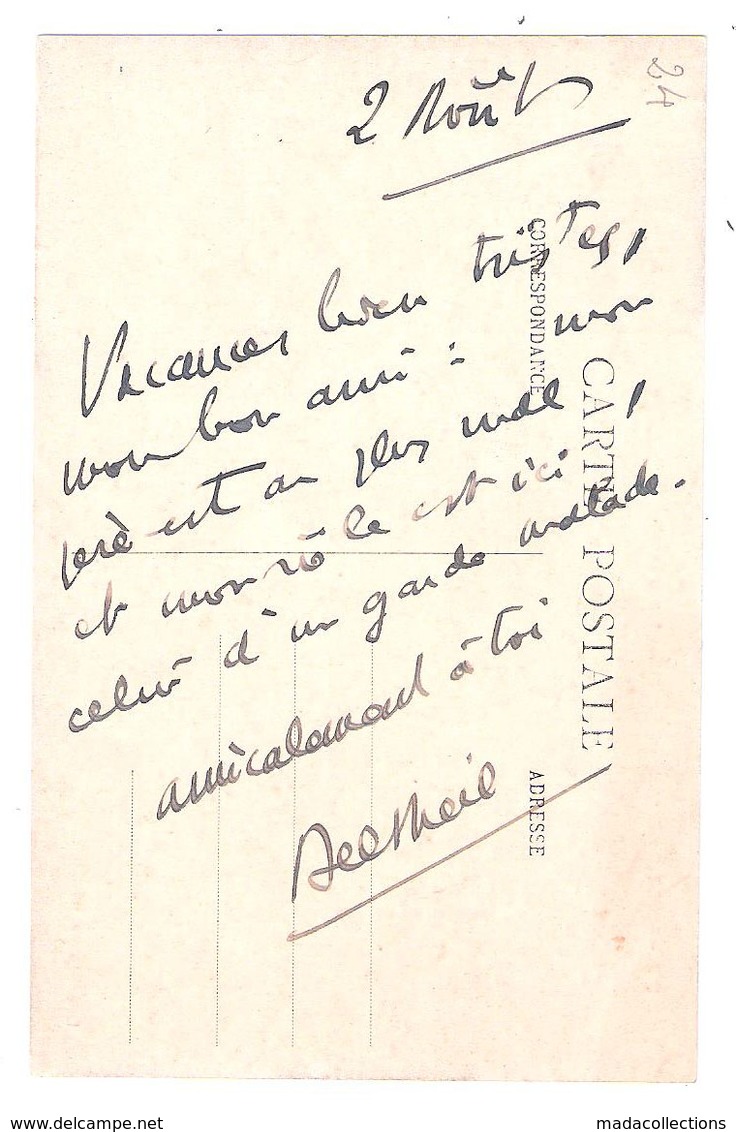 24
2 Août
Vacances bien tristes,
mon bon ami : mon
père est au plus mal,
et mon rôle est ici
celui d'un garde malade.
amicalement à toi
CORRESPONDANCE
CARTE POSTALE
ADRESSE
www.delcampe.net
madacollections